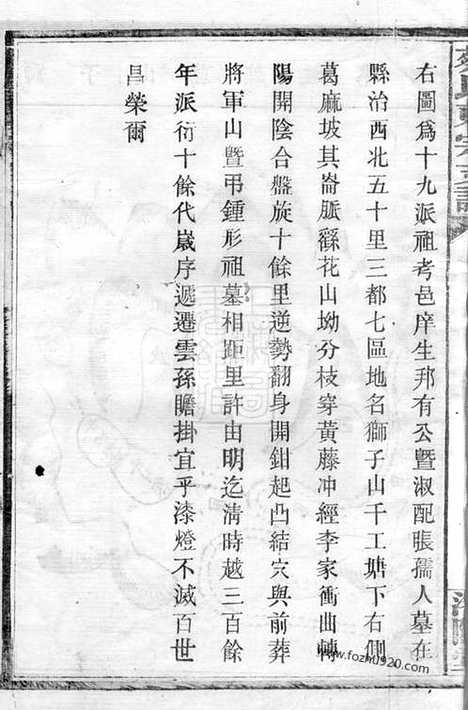 右圖爲十九派祖考邑庠生邦有公暨淑配張孺人墓在
縣治西北五十里三都七區地名獅子山千工塘下右側
葛麻坡其崙脈繇花山坳分枝穿黃藤冲經李家衝曲轉
陽開陰合盤旋十餘里逆勢翻身開鉗起凸結穴與前葬
將軍山暨弔鍾形祖墓相距里許由明迄淸時越三百餘
年派衍十餘代歲序遞遷雲孫瞻掛宜乎漆燈不滅百世
昌榮爾
www.fozhu920.com